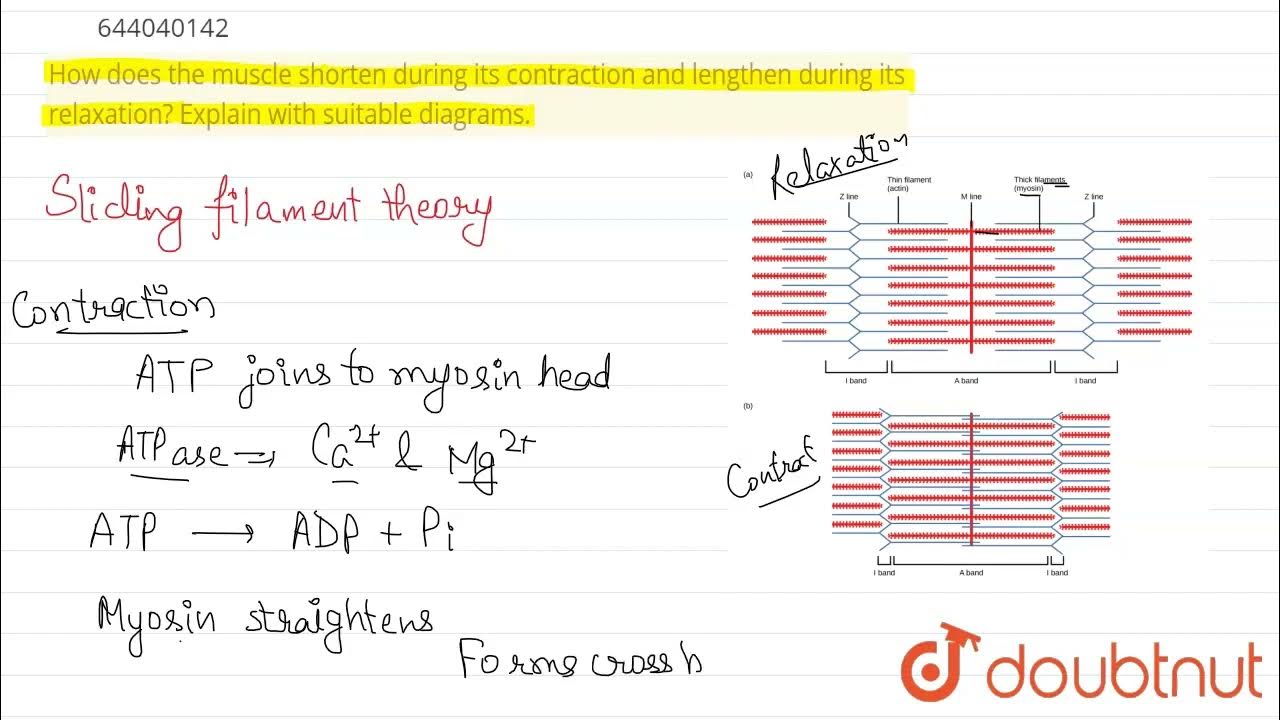 644040142
How does the muscle shorten during its contraction and lengthen during its
relaxation? Explain with suitable diagrams.
Sliding filament theory
Contraction
ATP joins to myosin head
ATPase → Ca2+ & Mg2+
ATP → ADP + Pi
Myosin straightens
Forms cross b
(a)
Relaxation
Thin filament
(actin)
Thick filaments
(myosin)
Z line
M line
Z line
I band
A band
I band
(b)
Contract
I band
A band
I band
doubtnut